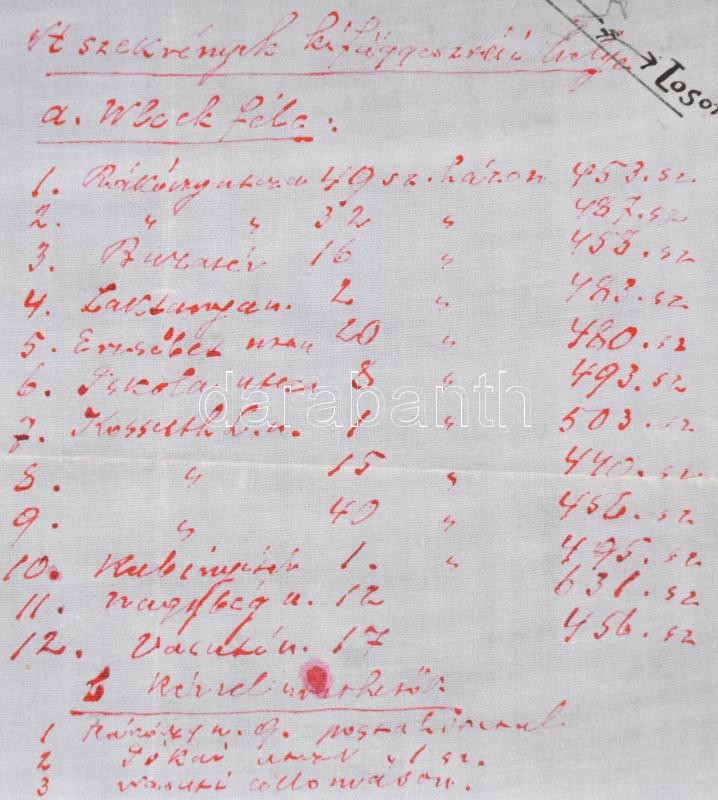 A szekrények kifüggesztési helye
→ Loson
a. Wlock féle:
1. Rákóczy utcza 49 sz. házon 453. sz
2. „ „ 32 „ 487. sz
3. Buzatér 16 „ 453. sz
4. Laktanya u. 2 „ 483. sz
5. Erzsébet utcza 20 „ 480. sz
6. Iskola utcza 8 „ 493. sz
7. Kossuth L. u. 1 „ 503. sz
8. „ 15 „ 440. sz
9. „ 40 „ 456. sz
10. Kubinyitér 1. „ 495. sz
11. u. 12 631. sz
12. Vasut u. 17 456. sz
b Kézzel üríthetők
1 Rákóczy u. 9. postahivatal
2 Jókai utcza 1 sz.
3 vasuti állomáson.
darabanth